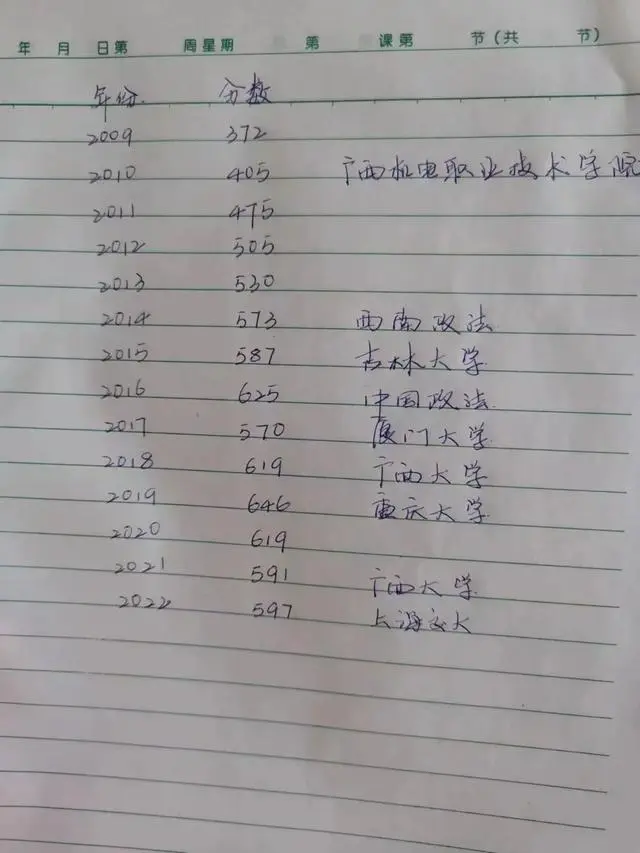 年 月 日第 周星期 第 课第 节(共 节)
年份 分数
2009 372
2010 405 广西机电职业技术学院
2011 475
2012 505
2013 530
2014 573 西南政法
2015 587 吉林大学
2016 625 中国政法
2017 570 厦门大学
2018 619 广西大学
2019 646 重庆大学
2020 619
2021 591 广西大学
2022 597 上海交大